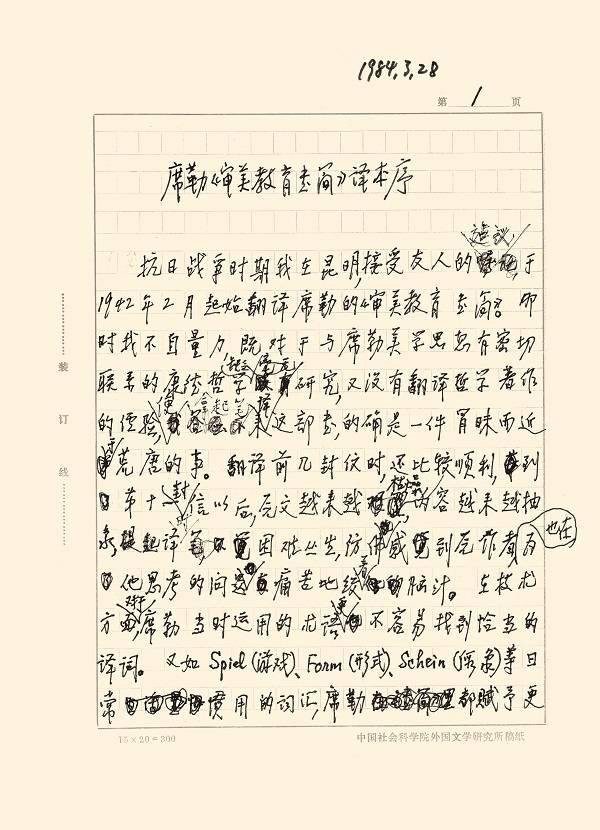 1984.3.28
第 1 页
席勒《审美教育书简》译本序
建议
抗日战争时期我在昆明,接受友人的,于
1942年2月起始翻译席勒的《审美教育书简》。那
时我不自量力,既对于与席勒美学思想有密切
联系的康德哲学研究,又没有翻译哲学著作
的经验,便拿起笔来译这部书,的确是一件冒昧而近
乎荒唐的事。翻译前几封信时,还比较顺利,到
第十一封信以后,原文越来越,内容越来越抽
象,译困难丛生,仿佛感到原作者也在为
他思考的问题痛苦地绞着脑汁。在技术
方面,席勒当时运用的术语更不容易找到恰当的
译词。又如Spiel(游戏)、Form(形式)、Schein(假象)等日
常惯用的词汇,席勒都赋予更
装订线
15×20=300
中国社会科学院外国文学研究所稿纸